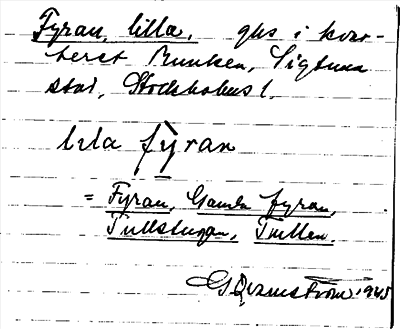 Fyran, lilla, ghs i kvar-
teret Munken, Sigtuna
stad, Stockholms l.
lila fyran
= Fyran, Gamla fyran,
Tullstugan, Tullen.
G Qvarnström 1945